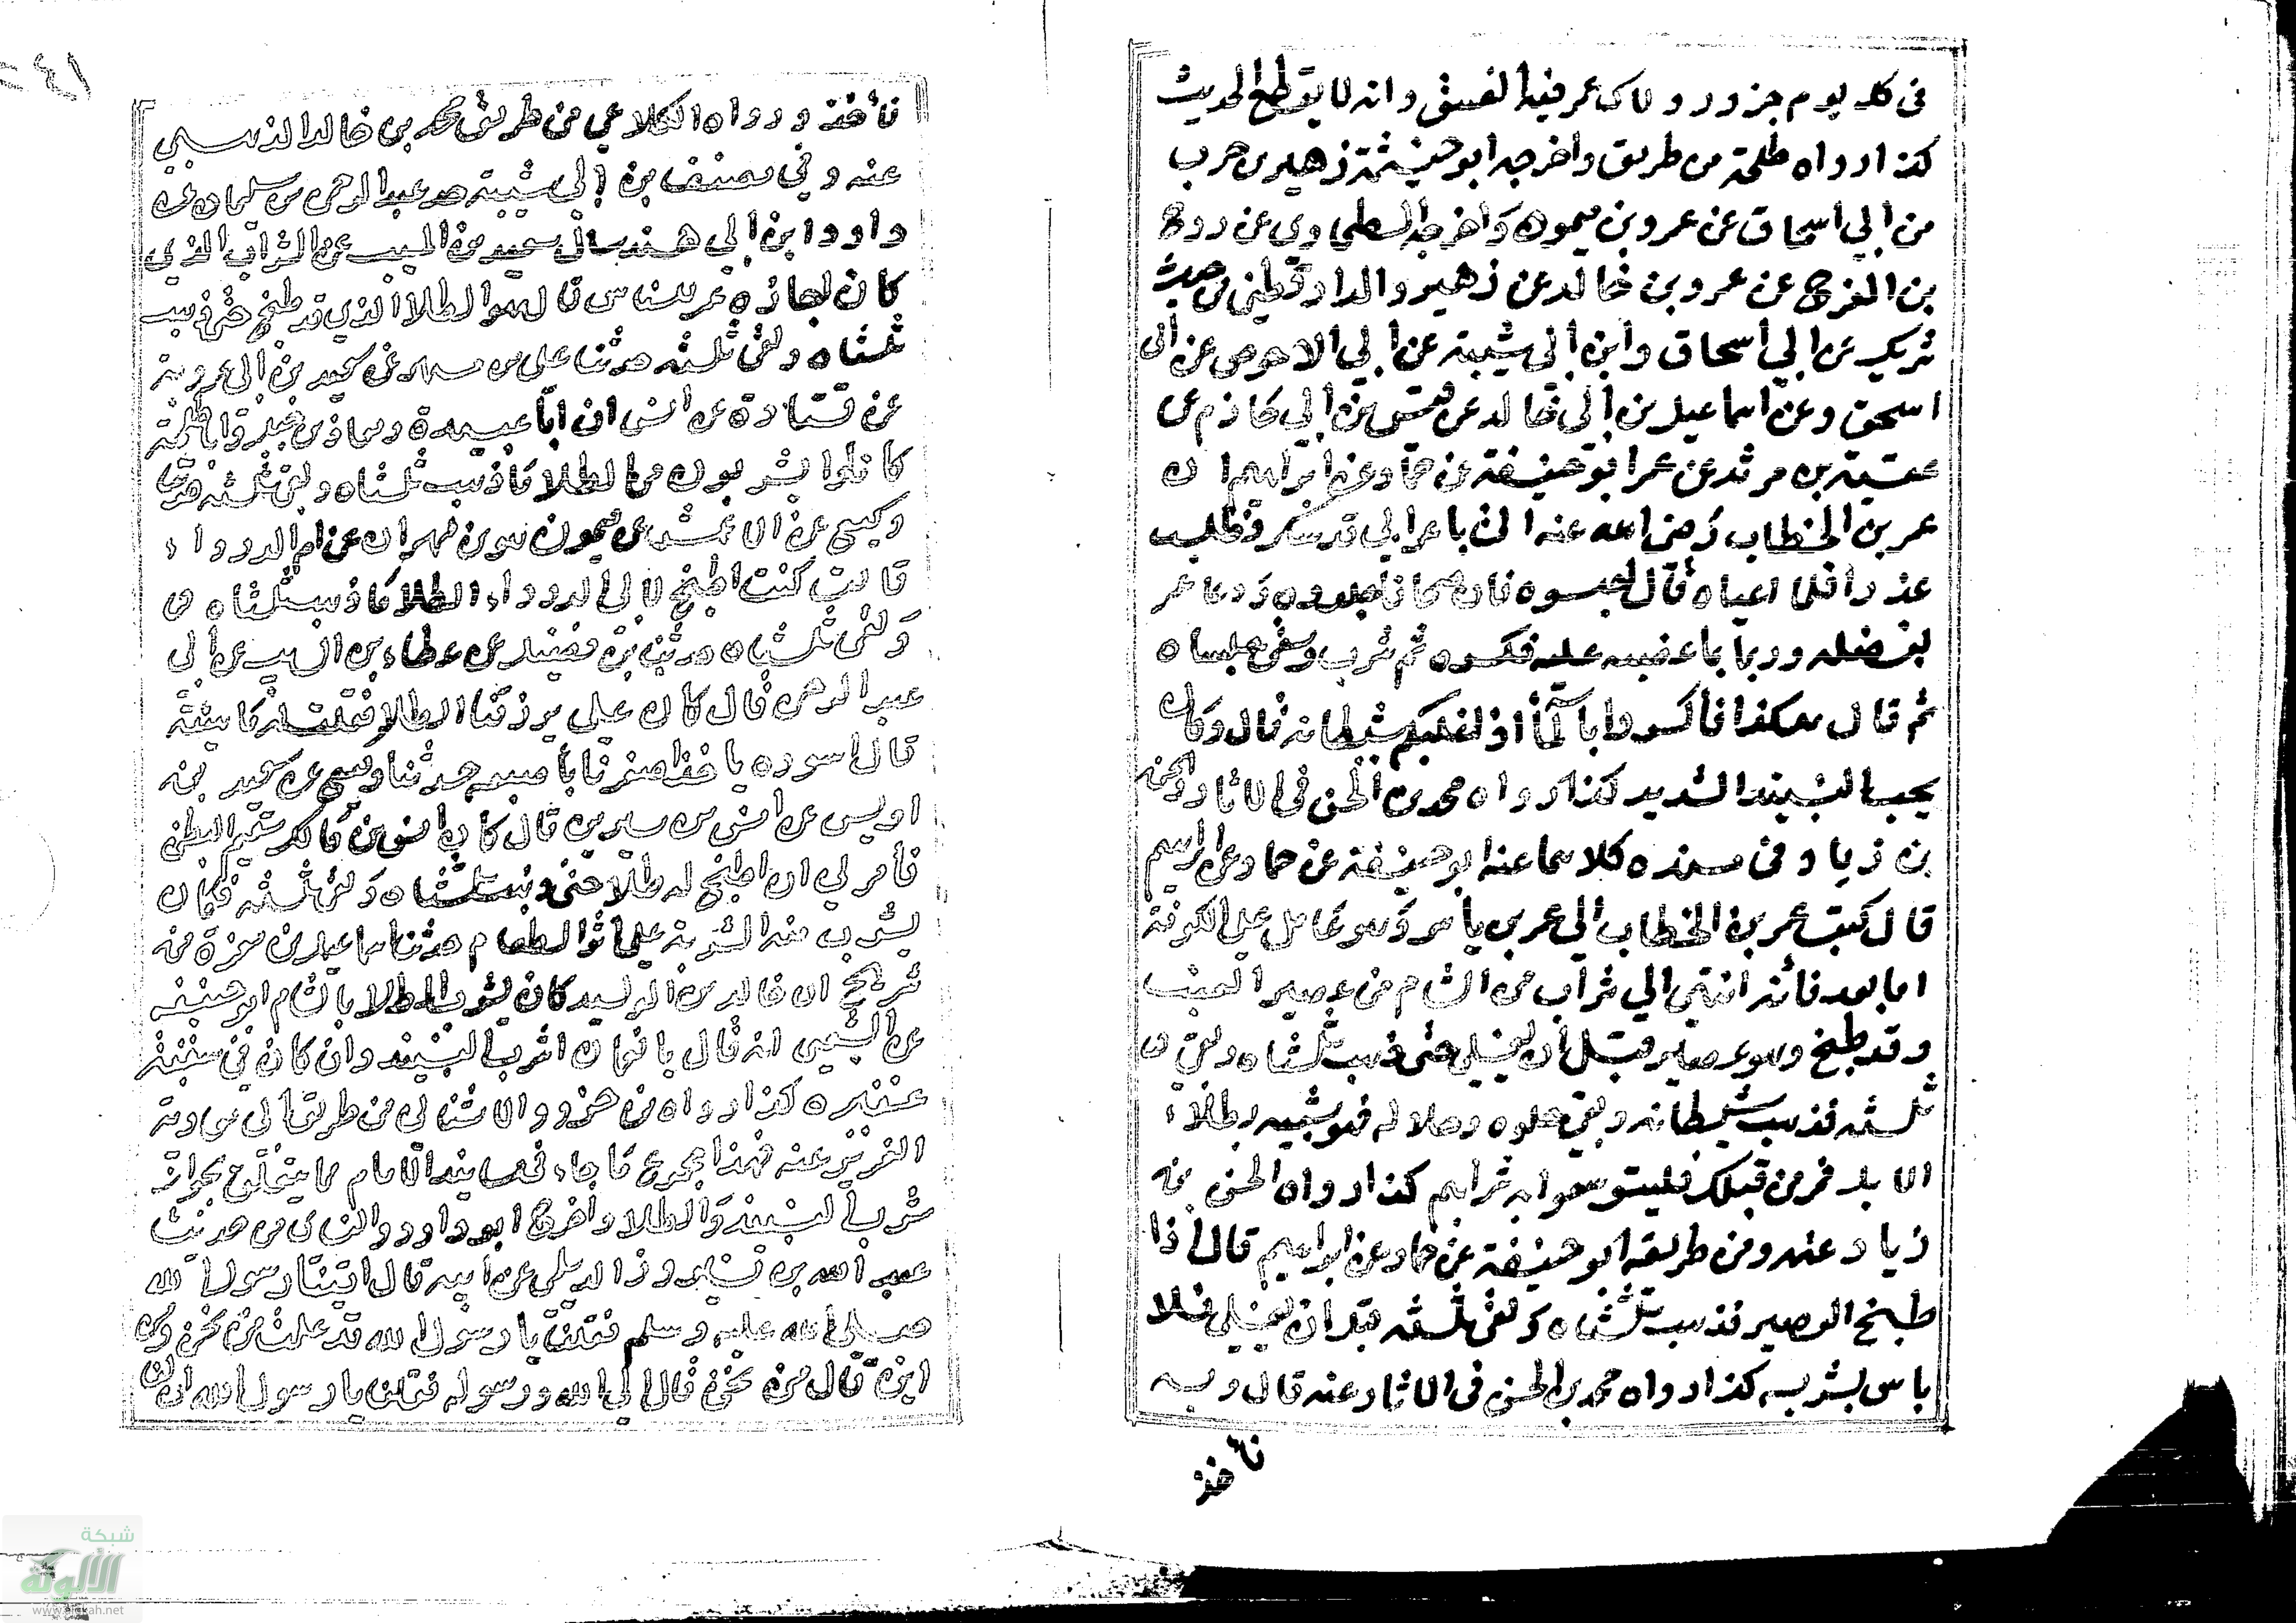 فى كل يوم جزور و لال عمر فيها العنق وانه لا يقطع الحديث
كذا رواه طلحة من طريقه واخرجه ابو خيثمة زهير بن حرب
من ابي اسحاق عن عمرو بن ميمون واخرجه الطحاوي عن روح
بن الفرج عن عمرو بن خالد عن زهير والدارقطني من حديث
شريك عن ابي اسحاق وابن ابي شيبة عن ابي الاحوص عن ابى
اسحق وعن اسماعيل بن ابي خالد عن قيس بن ابي حازم عن
عتبة بن مرثد عن عمر ابو حنيفة عن حماد عن ابراهيم ان
عمر بن الخطاب رضى الله عنه اتى باعرابي قد سكر فطلب
عذرا فلما اعياه قال احبسوه فان صحا فاجلدوه ودعا عمر
بفضله ودعا بما فصبه عليه فكسره ثم شرب وسقى جلساه
ثم قال هكذا فاكسروه بالماء اذا غلبكم شيطانه قال وكان
يحب النبيذ الشديد كذا رواه محمد بن الحسن فى الاثار والحسن
بن زياد فى مسنده كلاهما عنه ابو حنيفة عن حماد عن ابراهيم
قال كتب عمر بن الخطاب الي عمر بن ياسر وهو عامل على الكوفة
اما بعد فانه انتهى الي شراب من الشام من عصير العنب
وقد طبخ وهو عصير قبل ان يغلي حتى ذهب ثلثاه وبقى
ثلثه فذهب شيطانه وبقى حلوه وحلاله فهو شبيه بطلاء
الابل فمر من قبلك فليتوسعوا به شرابهم كذا رواه الحسن بن
زياد عنه ومن طريقه ابو حنيفة عن حماد عن ابراهيم قال اذا
طبخ العصير فذهب ثلثاه وبقى ثلثه قبل ان يغلي فلا
باس بشربه كذا رواه محمد بن الحسن فى الاثار عنه قال وبه
ناخذ
٤١
نأخذ ورواه الكلاعي من طريق محمد بن خالد الذهبي
عنه وفي مصنف بن ابي شيبة حد عبد الرحمن بن سليمان عن
داود ابن ابي هند سال سعيد بن المسيب عن الشراب الذي
كان اجازه عمر للناس قال هو الطلا الذي قد طبخ حتى ذهب
ثلثاه وبقى ثلثه حدثنا علي بن مسهر عن سعيد بن ابي عروبة
عن قتادة عن انس ان ابا عبيدة ومعاذ بن جبل وابا طلحة
كانوا يشربون من الطلا ما ذهب ثلثاه وبقى ثلثه حدثنا
وكيع عن الاعمش عن ميمون هو بن مهران عن ام الدرداء
قالت كنت اطبخ لابي الدرداء الطلا ما ذهب ثلثاه
وبقى ثلثاه حدثنا بن فضيل عن عطاء بن السايب عن ابي
عبد الرحمن قال كان علي يرزقنا الطلا فقلت له ما هيئته
قال اسود ياخذه احدنا باصبعه حدثنا وكيع عن سعيد بن
اويس عن انس بن سيرين قال كان انس بن مالك سقيم البطن
فأمرني ان اطبخ له طلا حتى ذهب ثلثاه وبقى ثلثه فكان
يشرب منه الشربة على اثر الطعام حدثنا اسماعيل بن عن
شريح ان خالد بن الوليد كان يشرب الطلا بالشام ابو حنيفة
عن الشعبي انه قال يا نعمان اشرب النبيذ وان كان في سفينة
كذا رواه بن خسرو والاشناني من طريق ابي معاوية
الضرير عنه فهذا مجموع ما جاء في مسانيد الامام مما يتعلق بجواز
شرب النبيذ والطلا واخرج ابو داود والنسائى من حديث
عبد الله بن فيروز الديلمي عن ابيه قال اتينا رسول الله
صلى الله عليه وسلم فقلنا يا رسول الله قد علمت من نحن ومن
اين قال من نحن قال الي الله ورسوله فقلنا يا رسول الله ان لنا
شبكة
الألوكة
www.alukah.net